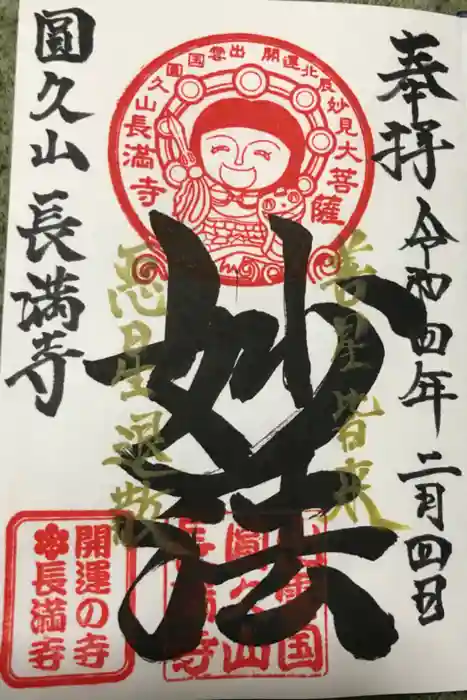 奉拝
令和四年二月四日
開運北辰妙見大菩薩
出雲国圓久山長満寺
善星皆来
妙法
悪星退散
出雲国
圓久山
長満寺
圓久山 長満寺
開運の寺
長満寺